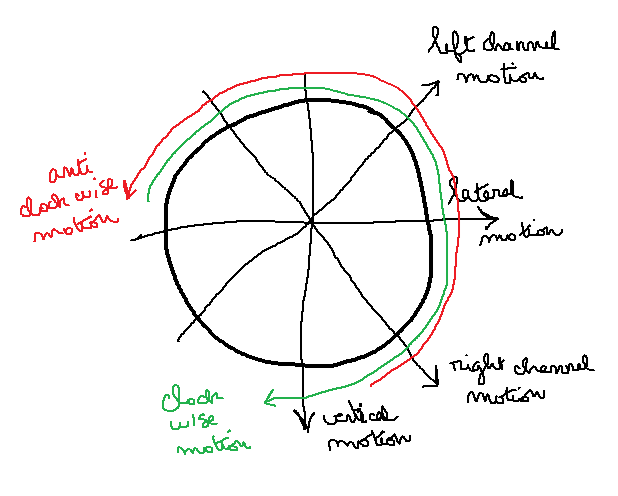 left channel
motion
anti
clock wise
motion
lateral
motion
right channel
motion
clock
wise
motion
vertical
motion